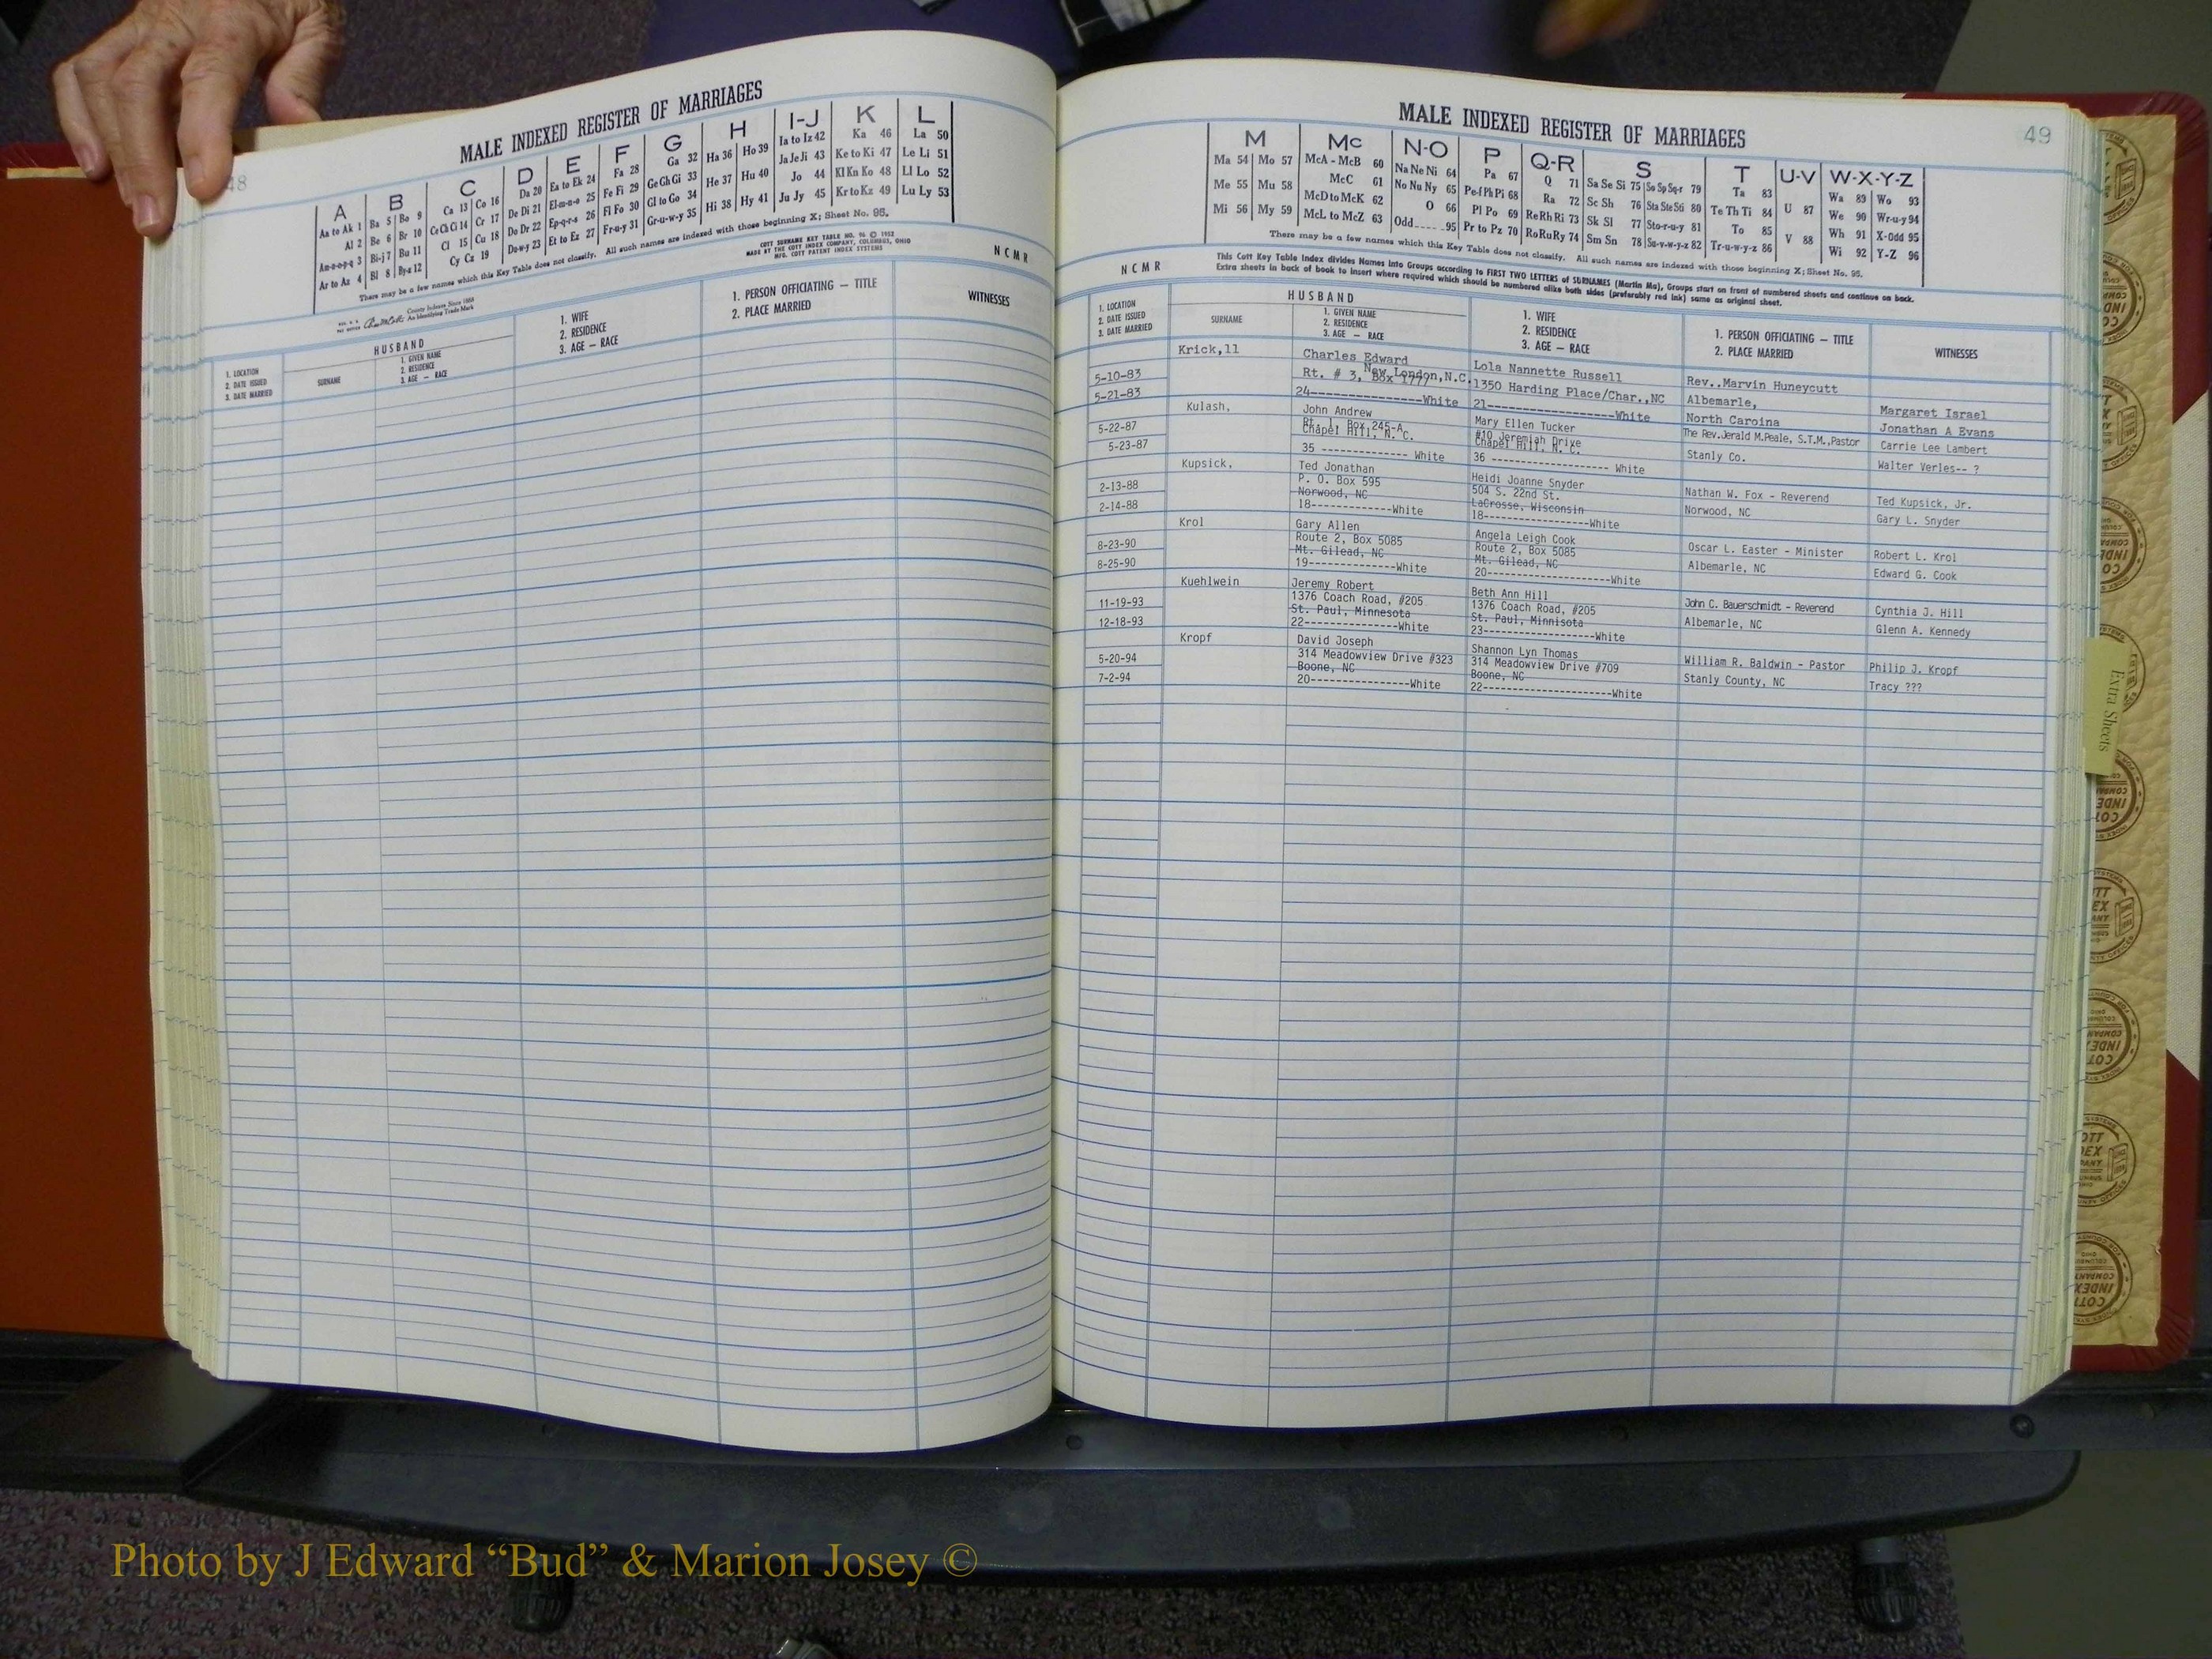 48
MALE INDEXED REGISTER OF MARRIAGES
A B C D E F G H I-J K L
Aa to Ak 1 Ba 5 Bo 9 Ca 13 Co 16 Da 20 Ea to Ek 24 Fa 28 Ga 32 Ha 36 Ho 39 Ia to Iz 42 Ka 46 La 50
Al 2 Be 6 Br 10 Ce Ch Ci 14 Cr 17 De Di 21 El-m-n-o 25 Fe Fi 29 Ge Gh Gi 33 He 37 Hu 40 Ja Je Ji 43 Ke to Ki 47 Le Li 51
Am-n-o-p-q 3 Bi-j 7 Bu 11 Cl 15 Cu 18 Do Dr 22 Ep-q-r-s 26 Fl Fo 30 Gl to Go 34 Hi 38 Hy 41 Jo 44 Kl Kn Ko 48 Ll Lo 52
Ar to Az 4 Bl 8 By-z 12 Cy Cz 19 Du-w-y 23 Et to Ez 27 Fr-u-y 31 Gr-u-w-y 35 Ju Jy 45 Kr to Kz 49 Lu Ly 53
There may be a few names which this Key Table does not classify. All such names are indexed with those beginning X; Sheet No. 95.
COTT SURNAME KEY TABLE NO. 96 © 1952
MADE BY THE COTT INDEX COMPANY, COLUMBUS, OHIO
MFG. COTT PATENT INDEX SYSTEMS
County Indexes Since 1888
An Identifying Trade Mark
N C M R
1. LOCATION
2. DATE ISSUED
3. DATE MARRIED
HUSBAND
SURNAME
1. GIVEN NAME
2. RESIDENCE
3. AGE — RACE
1. WIFE
2. RESIDENCE
3. AGE — RACE
1. PERSON OFFICIATING — TITLE
2. PLACE MARRIED
WITNESSES
49
MALE INDEXED REGISTER OF MARRIAGES
M Mc N-O P Q-R S T U-V W-X-Y-Z
Ma 54 Mo 57 McA - McB 60 Na Ne Ni 64 Pa 67 Q 71 Sa Se Si 75 So Sp Sq-r 79 Ta 83 U 87 Wa 89 Wo 93
Me 55 Mu 58 McC 61 No Nu Ny 65 Pe-f Ph Pi 68 Ra 72 Sc Sh 76 Sta Ste Sti 80 Te Th Ti 84 V 88 We 90 Wr-u-y 94
Mi 56 My 59 McD to McK 62 O 66 Pl Po 69 Re Rh Ri 73 Sk Sl 77 Sto-r-u-y 81 To 85 Wh 91 X-Odd 95
McL to McZ 63 Odd 95 Pr to Pz 70 Ro Ru Ry 74 Sm Sn 78 Su-v-w-y-z 82 Tr-u-w-y-z 86 Wi 92 Y-Z 96
There may be a few names which this Key Table does not classify. All such names are indexed with those beginning X; Sheet No. 95.
This Cott Key Table Index divides Names into Groups according to FIRST TWO LETTERS of SURNAMES (Martin Ma), Groups start on front of numbered sheets and continue on back.
Extra sheets in back of book to insert where required which should be numbered alike both sides (preferably red ink) same as original sheet.
N C M R
1. LOCATION
2. DATE ISSUED
3. DATE MARRIED
HUSBAND
SURNAME
1. GIVEN NAME
2. RESIDENCE
3. AGE — RACE
1. WIFE
2. RESIDENCE
3. AGE — RACE
1. PERSON OFFICIATING — TITLE
2. PLACE MARRIED
WITNESSES
Krick,ll Charles Edward Lola Nannette Russell
5-10-83 Rt. # 3, Box 1777 New London,N.C. 1350 Harding Place/Char.,NC Rev..Marvin Huneycutt Margaret Israel
5-21-83 24----------------White 21------------------White Albemarle, North Caroina Jonathan A Evans
Kulash, John Andrew Mary Ellen Tucker
5-22-87 Rt. 1, Box 245-A Chapel Hill, N. C. #10 Jeremiah Drive Chapel Hill, N. C. The Rev.Jerald M.Peale, S.T.M.,Pastor Carrie Lee Lambert
5-23-87 35 ------------- White 36 ----------------- White Stanly Co. Walter Verles-- ?
Kupsick, Ted Jonathan Heidi Joanne Snyder
2-13-88 P. O. Box 595 504 S. 22nd St. Nathan W. Fox - Reverend Ted Kupsick, Jr.
Norwood, NC LaCrosse, Wisconsin
2-14-88 18-------------White 18-----------------White Norwood, NC Gary L. Snyder
Krol Gary Allen Angela Leigh Cook
8-23-90 Route 2, Box 5085 Route 2, Box 5085 Oscar L. Easter - Minister Robert L. Krol
Mt. Gilead, NC Mt. Gilead, NC
8-25-90 19--------------White 20--------------------White Albemarle, NC Edward G. Cook
Kuehlwein Jeremy Robert Beth Ann Hill
11-19-93 1376 Coach Road, #205 1376 Coach Road, #205 John C. Bauerschmidt - Reverend Cynthia J. Hill
St. Paul, Minnesota St. Paul, Minnisota
12-18-93 22---------------White 23------------------White Albemarle, NC Glenn A. Kennedy
Kropf David Joseph Shannon Lyn Thomas
5-20-94 314 Meadowview Drive #323 314 Meadowview Drive #709 William R. Baldwin - Pastor Philip J. Kropf
Boone, NC Boone, NC
7-2-94 20----------------White 22---------------------White Stanly County, NC Tracy ???
Extra Sheets
Photo by J Edward “Bud” & Marion Josey ©